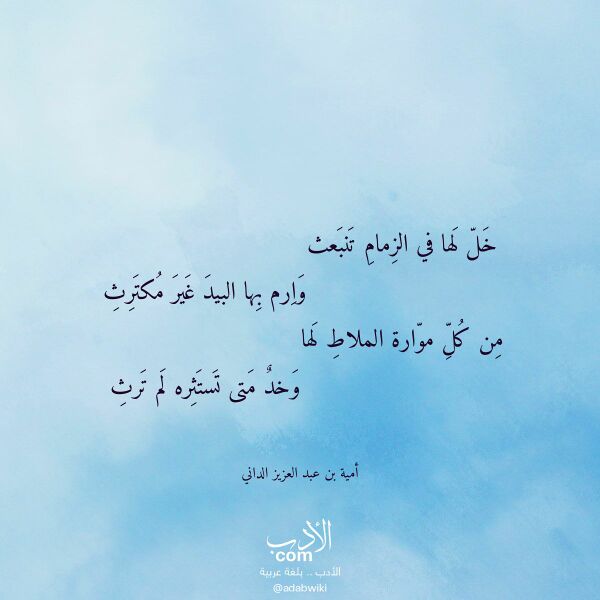 خَلّ لَها في الزِمامِ تَنبَعث
وَاِرم بِها البيدَ غَيرَ مُكتَرِثِ
مِن كُلِّ موّارة الملاطِ لَها
وَخدٌ مَتى تَستَثِره لَم تَرثِ
أمية بن عبد العزيز الداني
الأدب
com
الأدب .. بلغة عربية
@adabwiki